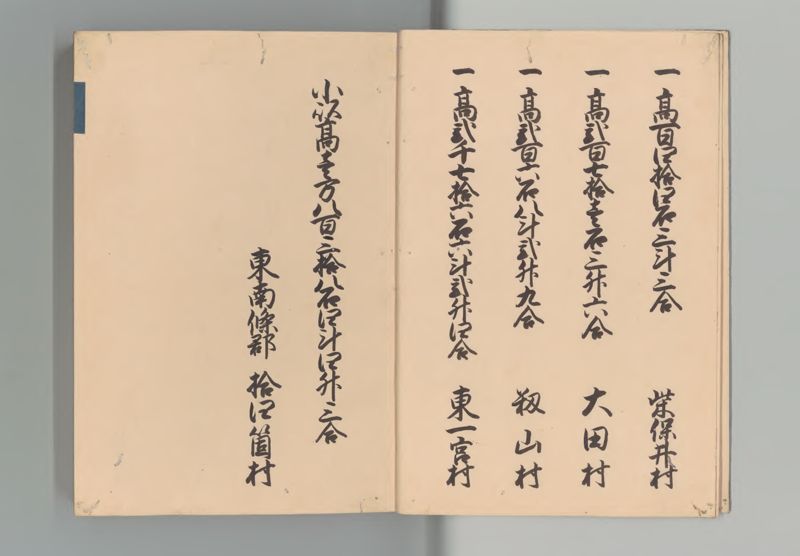 一 高百四拾四石三斗三合 柴保井村
一 高弐百七拾壱石三升六合 大田村
一 高弐百六石八斗弐升九合 靱山村
一 高弐千七拾六石六斗弐升四合 東一宮村
小以高壱万八百三拾八石四斗四升三合
東南條郡 拾四箇村